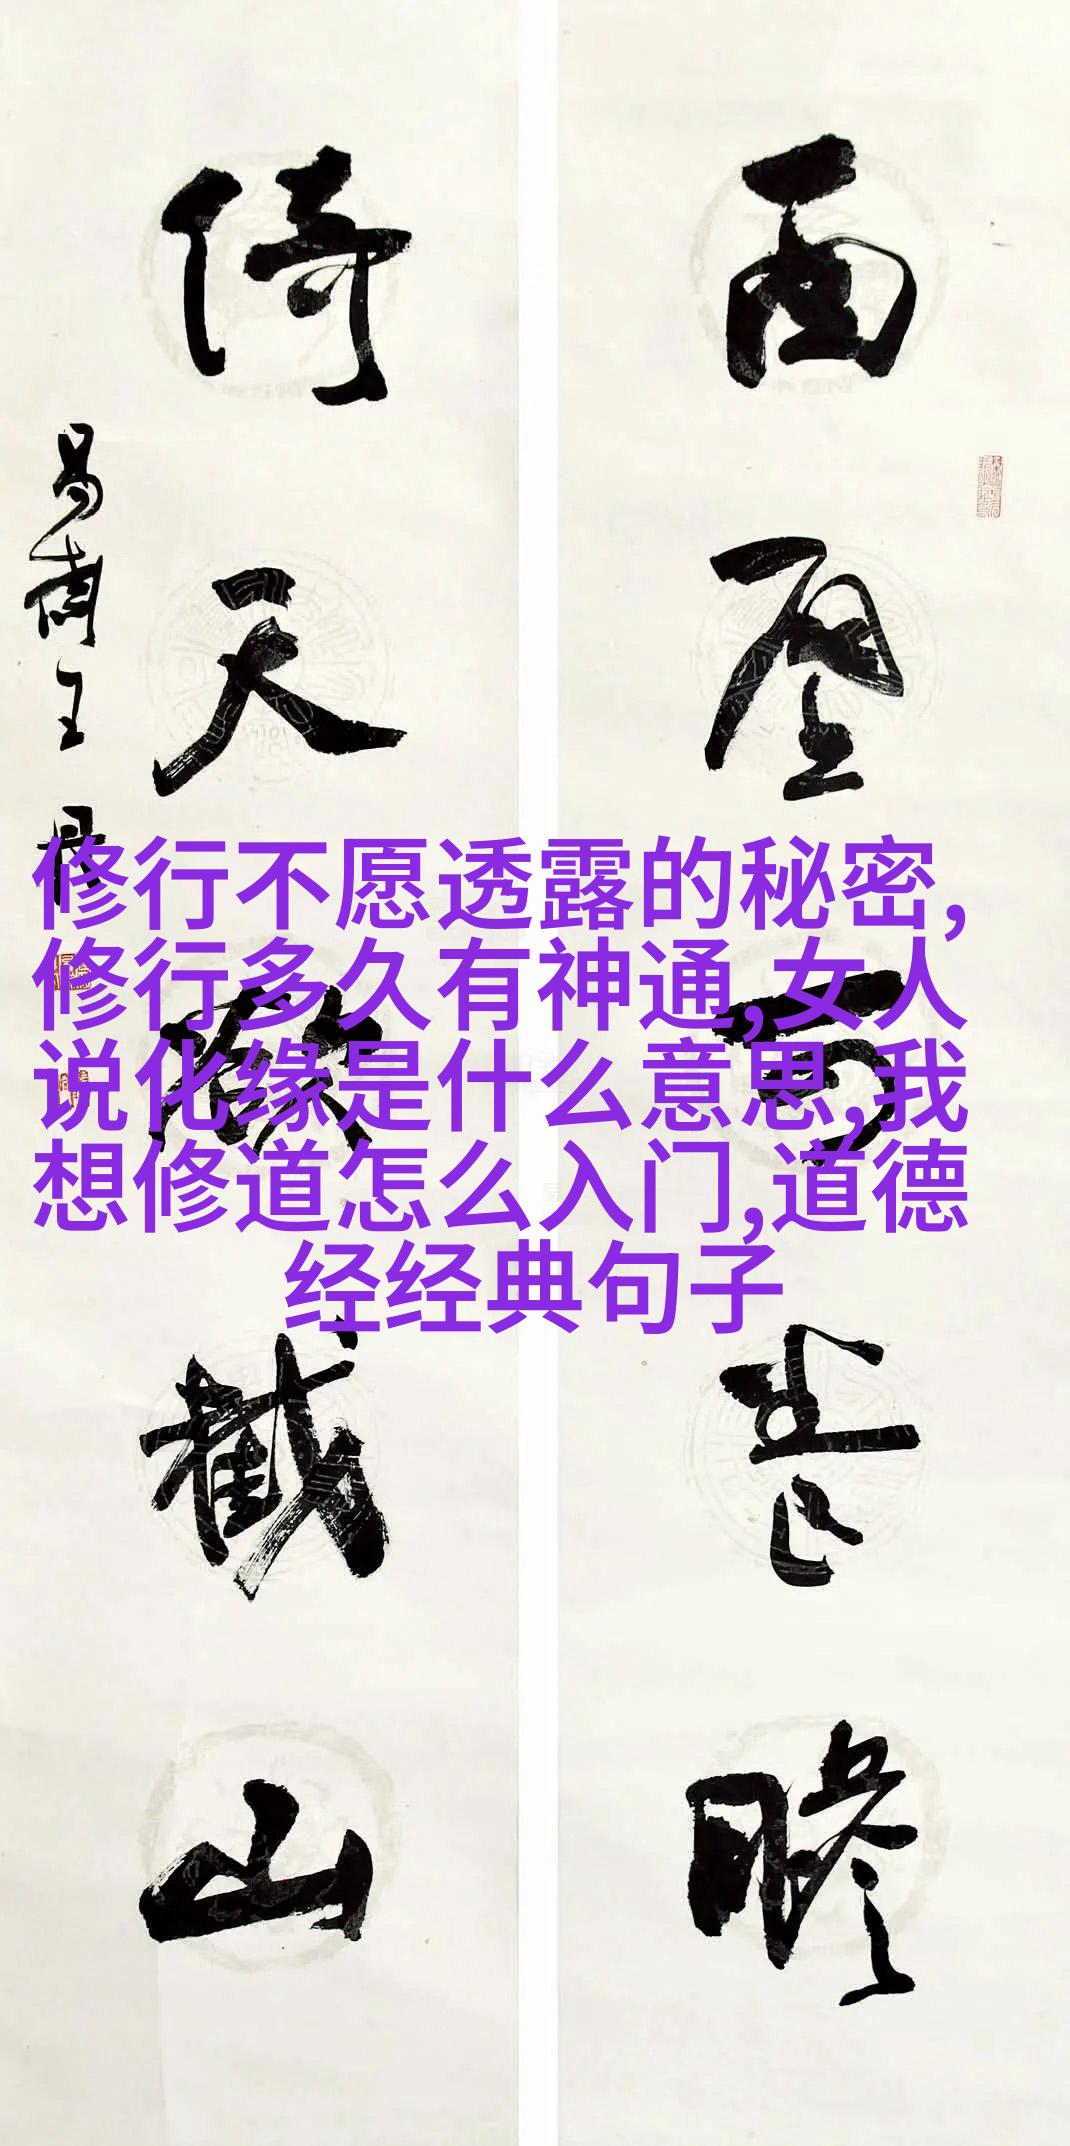 面壁
瞻
倚天欲截山
修行不愿透露的秘密,
修行多久有神通,女人
说化缘是什么意思,我
想修道怎么入门,道德
经经典句子